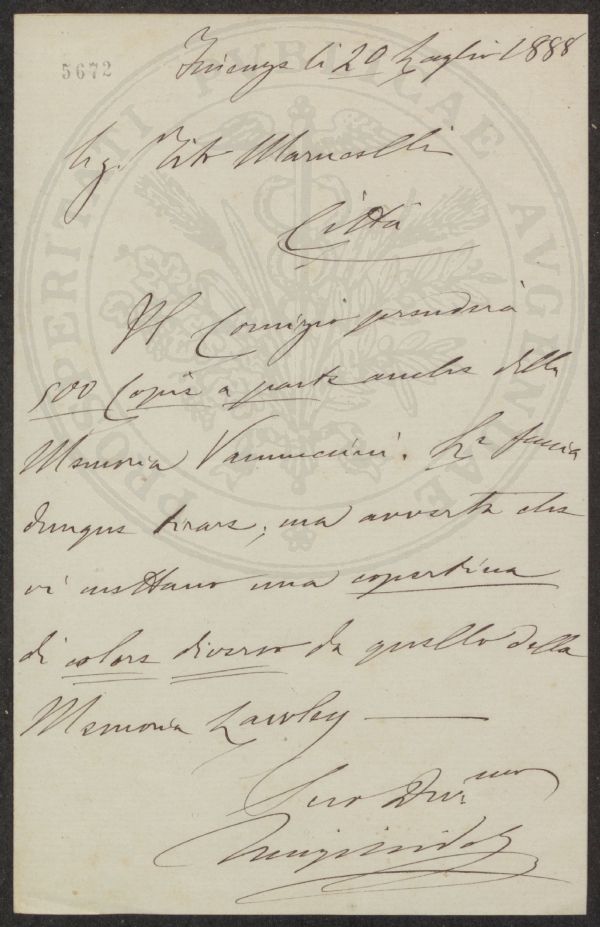 5672
Firenze li 20 Luglio 1888
Sig. Tito Marucelli
Città
Il Comizio prenderà
500 Copie a parte anche della
Memoria Vannuccini. Le faccia
dunque tirare; ma avverta che
vi mettano una copertina
di colore diverso da quello della
Memoria Lawley
Suo Dev.mo
PROSPERITATI PVBLICAE AVGENDAE